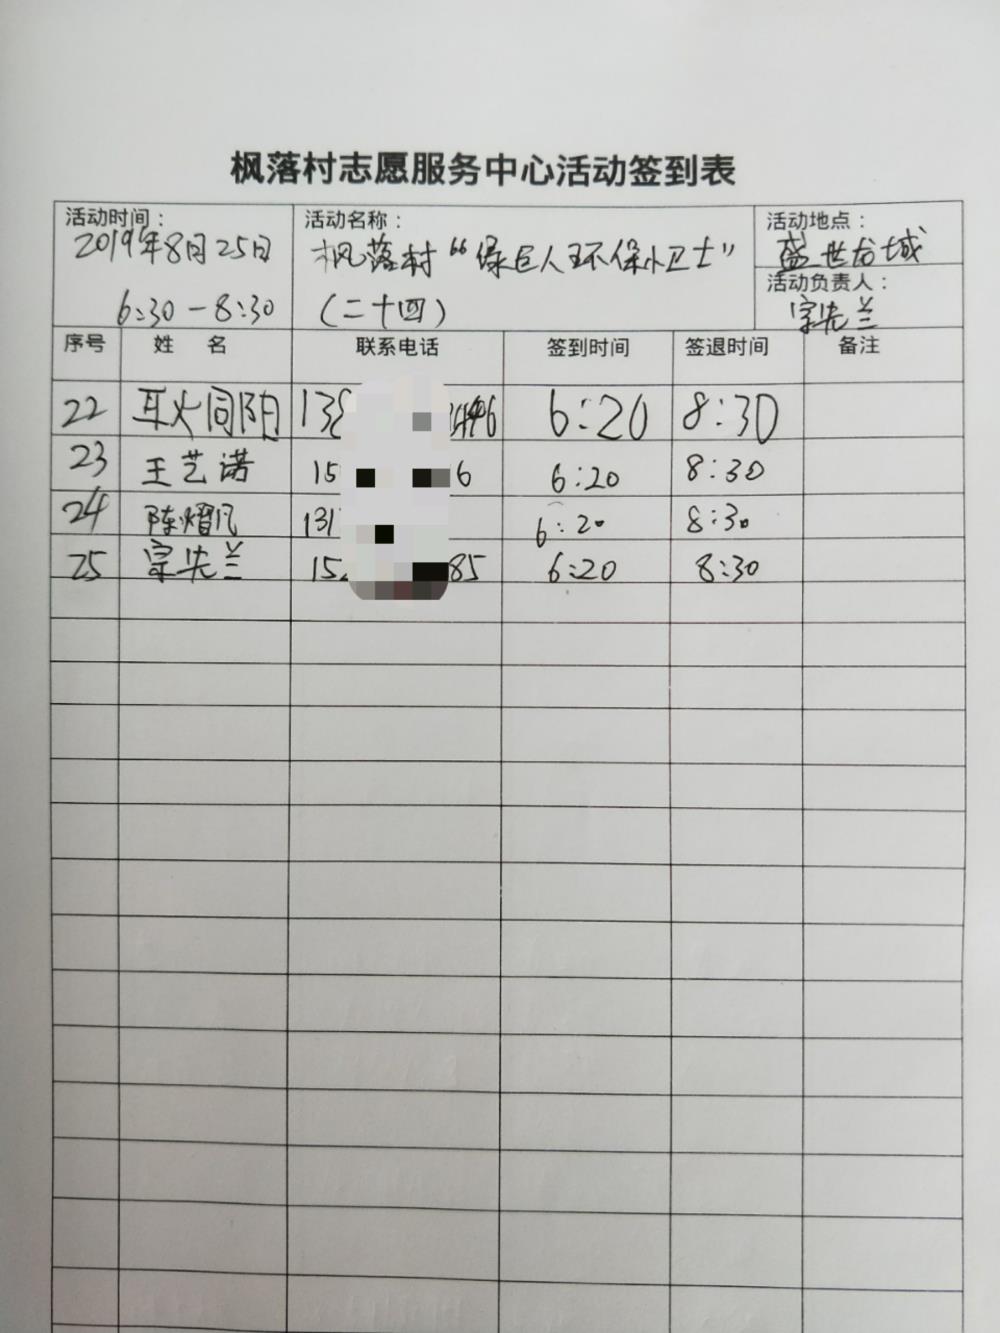 枫落村志愿服务中心活动签到表
活动时间： 活动名称： 活动地点：
2019年8月25日 枫落村“绿巨人环保小卫士” 盛世龙城
活动负责人：
6:30-8:30 （二十四） 宗先兰
序号 姓 名 联系电话 签到时间 签退时间 备注
22 耿同阳 138 6:20 8:30
23 王艺诺 15 6 6:20 8:30
24 陈熠凡 131 6:20 8:30
25 宗先兰 152 85 6:20 8:30